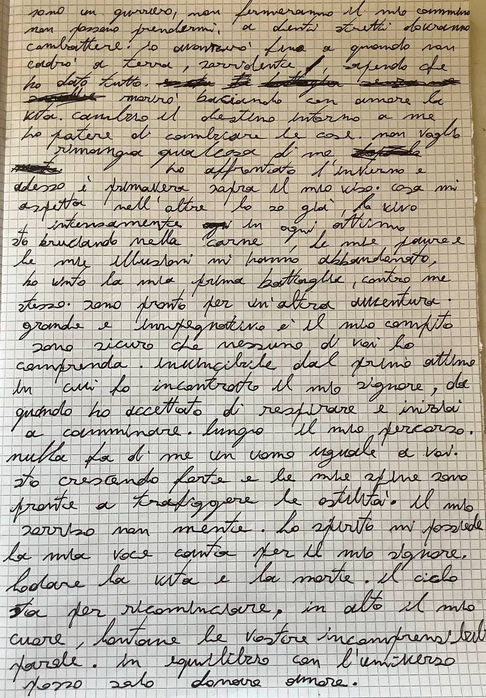 sono un guerriero, non fermeranno il mio cammino
non possono prendermi, a denti stretti dovranno
combattere. io avanzerò fino a quando non
cadrò a terra, sorridente, sapendo che
ho dato tutto.
morirò baciando con amore la
vita. cambio il destino intorno a me
ho potere di cambiare le cose. non voglio
rimanga qualcosa di me
ho affrontato l'inverno e
adesso è primavera sopra il mio viso. cosa mi
aspetta nell'oltre lo so già, la vivo
intensamente in ogni attimo
sto bruciando nella carne, le mie paure e
le mie illusioni mi hanno abbandonato,
ho vinto la mia prima battaglia, contro me
stesso. sono pronto per un'altra avventura.
grande e impegnativo è il mio compito
sono sicuro che nessuno di voi ho
comprenda. invincibile dal primo attimo
in cui ho incontrato il mio signore, da
quando ho accettato di respirare e iniziai
a camminare. lungo il mio percorso.
nulla fa di me un uomo uguale a voi.
sto crescendo forte e le mie spine sono
pronte a trafiggere le ostilità. il mio
sorriso non mente. lo spirito mi possiede
la mia voce canta per il mio signore.
lodare la vita e la morte. il ciclo
sta per ricominciare, in alto il mio
cuore, lontane le vostre incomprensibili
parole. in equilibrio con l'universo
posso solo donare amore.